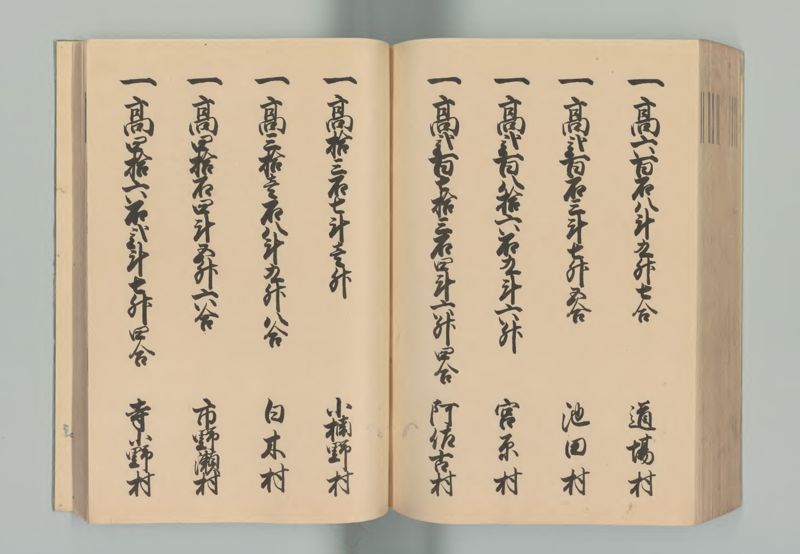 一高六百石八斗九升七合　道場村
一高弐百石三斗七升五合　池田村
一高弐百八拾六石九斗六升　宮原村
一高弐百七拾三石四斗六升四合　阿佐古村
一高拾三石七斗壱升　小楠野村
一高三拾壱石八斗九升八合　白木村
一高四拾石四斗五升六合　市野瀬村
一高四拾六石弐斗七升四合　寺小野村